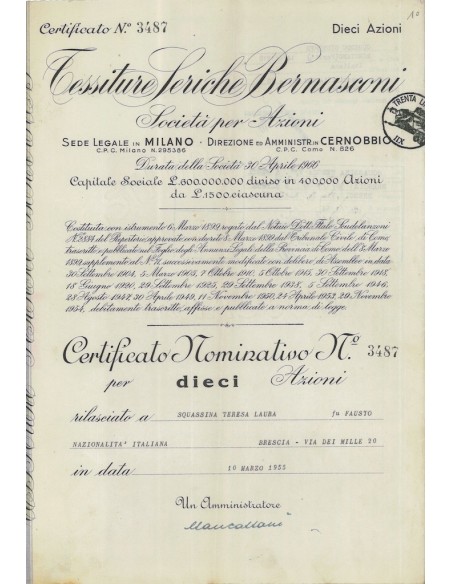 Certificato N.° 3487 Dieci Azioni
Tessiture Seriche Bernasconi
Società per Azioni
SEDE LEGALE IN MILANO - DIREZIONE ED AMMINISTR. IN CERNOBBIO
C.P.C. Milano N. 295386 C.P.C. Como N. 626
Durata della Società 30 Aprile 1966
Capitale Sociale L. 600.000.000 diviso in 400.000 Azioni
da L. 1500 ciascuna
Costituita con istrumento 6 Marzo 1899, rogato dal Notaio Dott. Italo
del Repertorio, approvato con decreto 8 Marzo 1899 del Tribunale Civile di Como,
trascritto e pubblicato nel Foglio degli Annunci Legali della Provincia di Como dell'
1899, supplemento al N. successivamente modificato con delibere di Assemblee in data
30 Settembre 1904, 5 Marzo 1905, 7 Ottobre 1910, 5 Ottobre 1915, 30 Settembre 1918,
18 Giugno 1920, 29 Settembre 1925, 29 Settembre 1938, 5 Settembre 1940,
28 Agosto 1942, 30 Aprile 1949, 11 Novembre 1950, 24 Aprile 1952, 29 Novembre
1954, debitamente trascritte, affisse e pubblicate a norma di legge.
Certificato Nominativo N.° 3487
per dieci Azioni
rilasciato a SQUASSINA TERESA LAURA fu FAUSTO
NAZIONALITA' ITALIANA BRESCIA - VIA DEI MILLE 20
in data 10 MARZO 1955
Un Amministratore
TRENTA